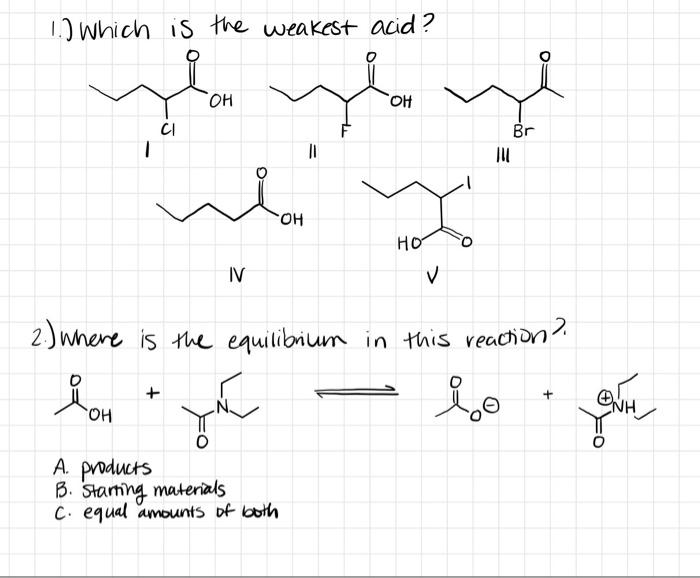 1.) Which is the weakest acid?
O O O
OH OH
Cl F Br
I II III
O I
OH HO O
IV V
2.) Where is the equilibrium in this reaction?
O + N ⇌ O + ⊕NH
OH O O⊖ O
A. products
B. Starting materials
C. equal amounts of both